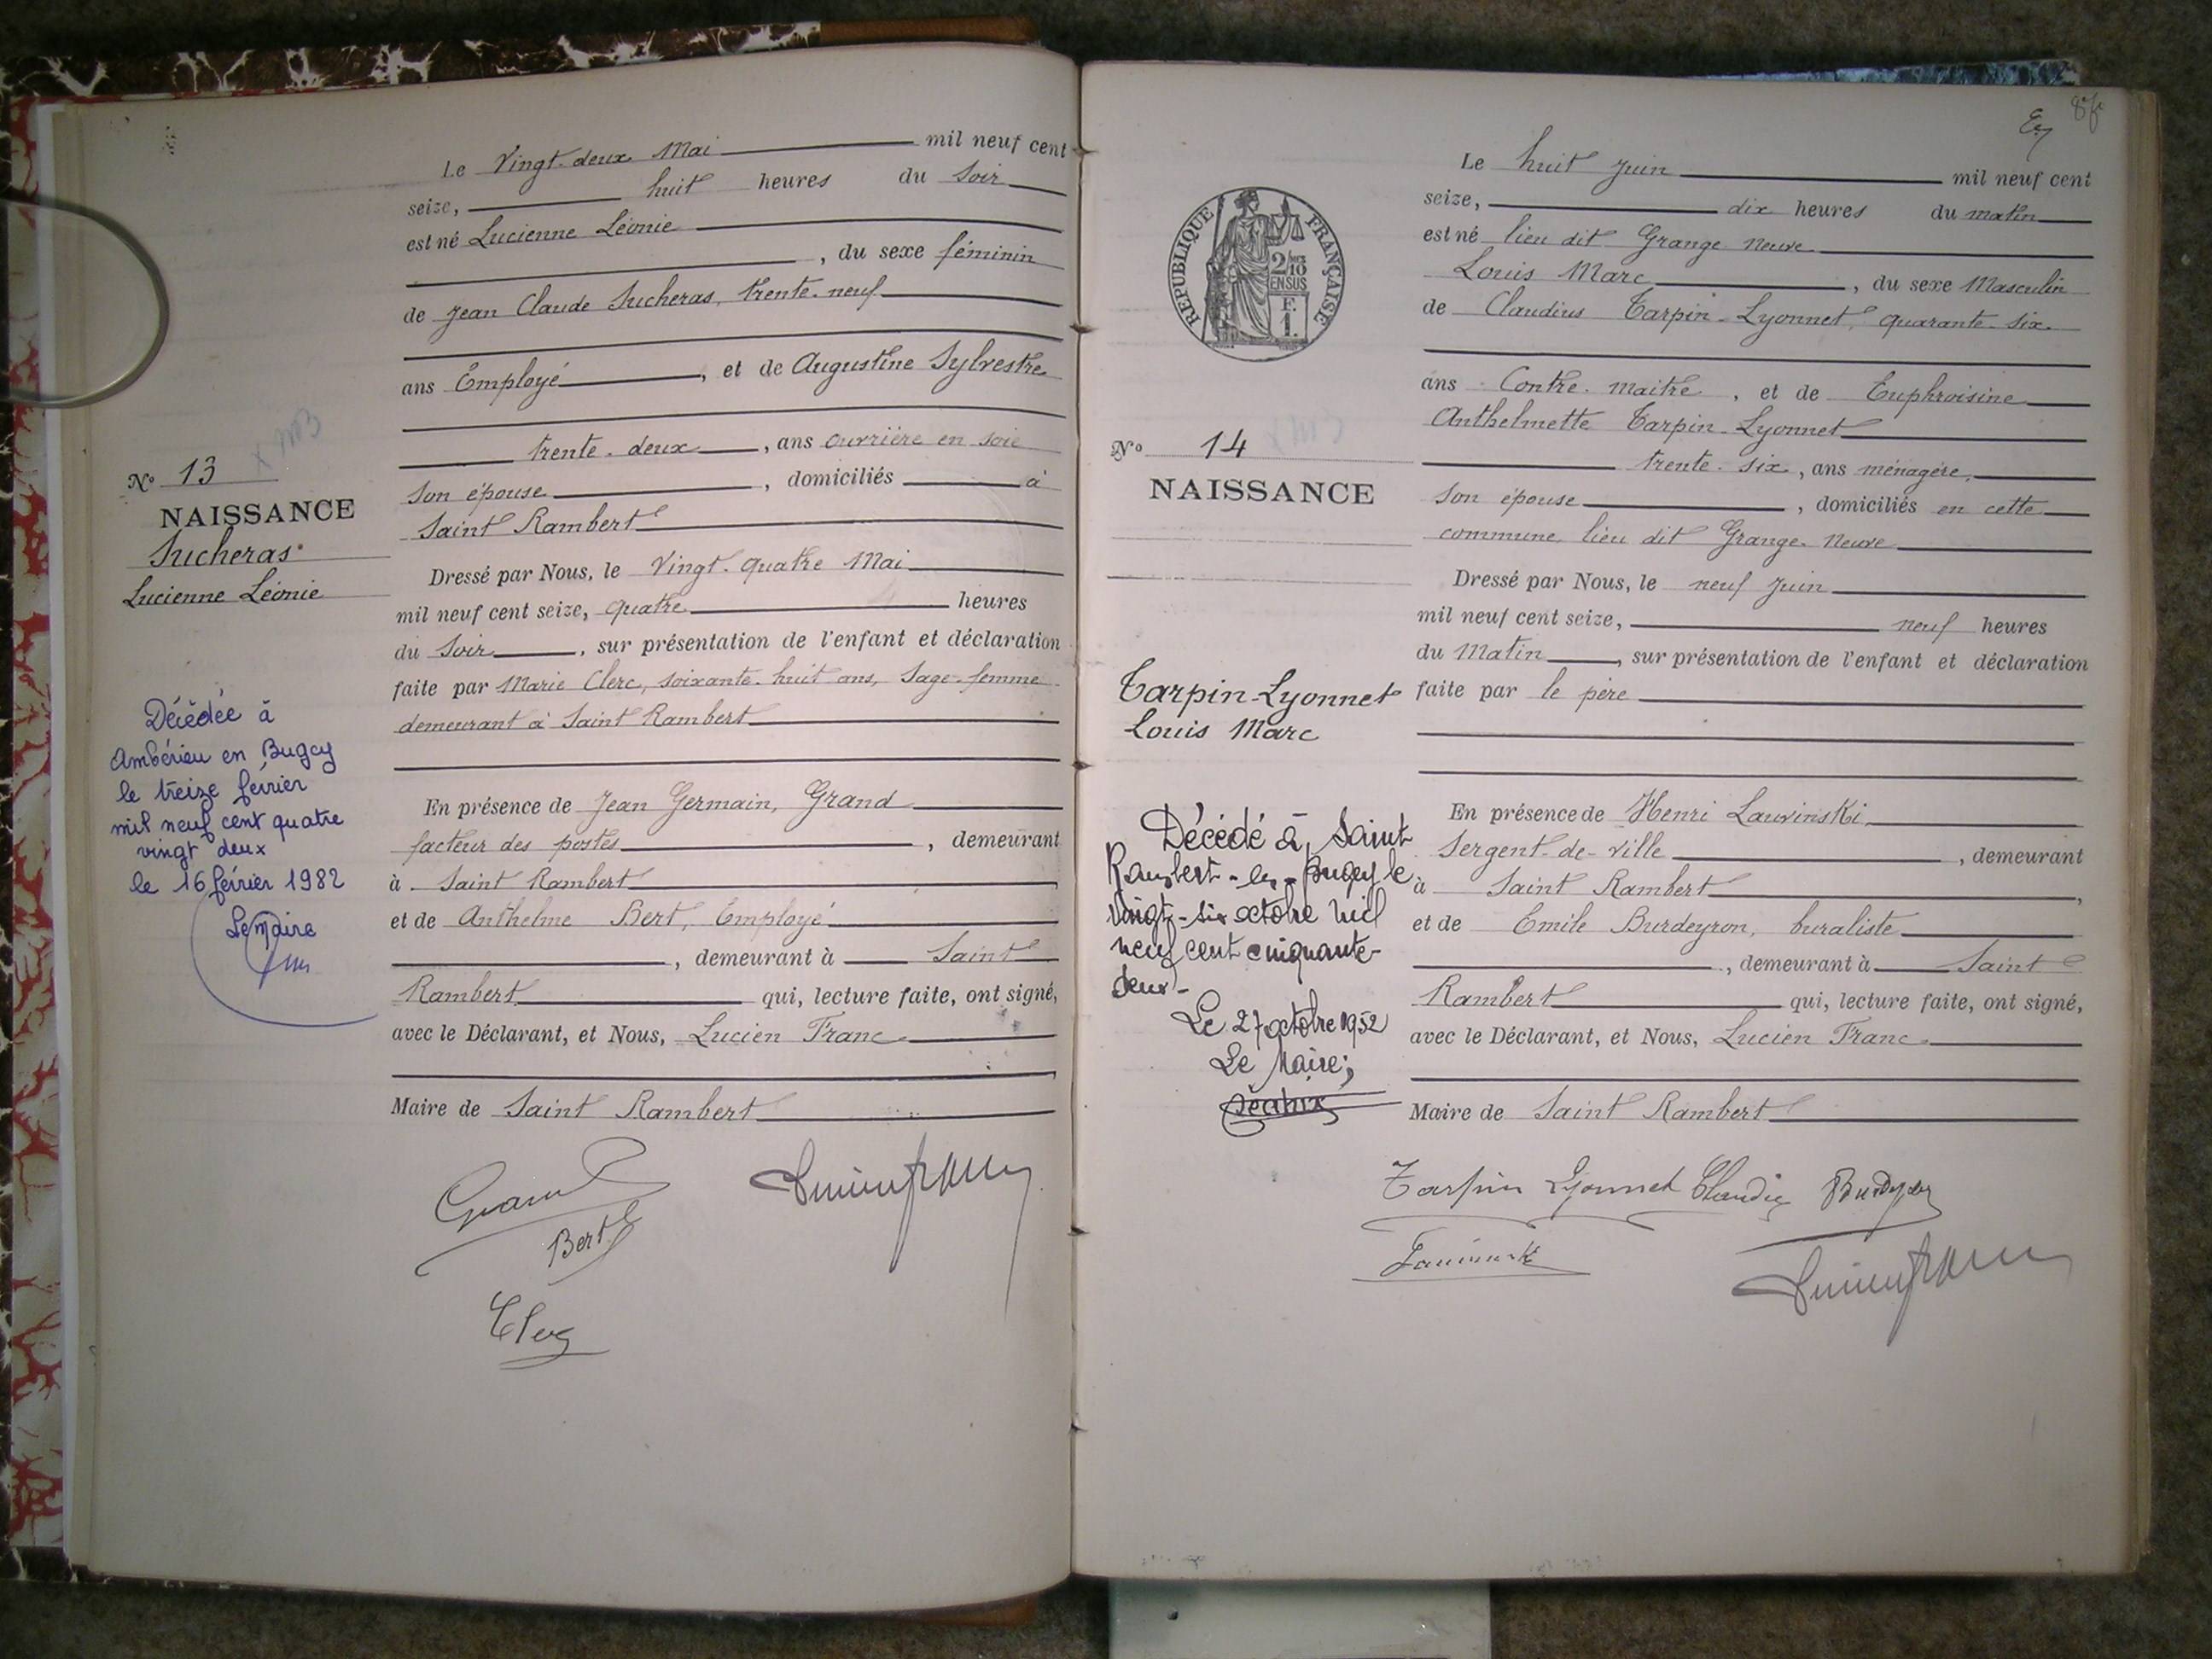 Le Vingt-deux Mai mil neuf cent
seize, huit heures du Soir
est né Lucienne Léonie
, du sexe féminin
de Jean Claude Sucheras, trente-neuf
ans Employé, et de Augustine Sylvestre
trente-deux, ans ouvrière en soie
son épouse, domiciliés à
Saint Rambert
Dressé par Nous, le Vingt-quatre Mai
mil neuf cent seize, quatre heures
du Soir, sur présentation de l'enfant et déclaration
faite par Marie Clerc, soixante-huit ans, Sage-femme
demeurant à Saint Rambert
En présence de Jean Germain, Grand
facteur des postes, demeurant
à Saint Rambert
et de Anthelme Bert, Employé
, demeurant à Saint
Rambert qui, lecture faite, ont signé,
avec le Déclarant, et Nous, Lucien Franc
Maire de Saint Rambert
Grand
Bert
Clerc
Lucien Franc
N° 13
NAISSANCE
Sucheras
Lucienne Léonie
Décédée à
Ambérieu en Bugey
le treize février
mil neuf cent quatre
vingt deux
le 16 février 1982
Le Maire
RÉPUBLIQUE FRANÇAISE
2/10
EN SUS
F.
1.
N° 14
NAISSANCE
Tarpin-Lyonnet
Louis Marc
Décédé à Saint
Rambert-en-Bugey le
vingt-six octobre mil
neuf cent cinquante-
deux-
Le 27 octobre 1952
Le Maire;
Le huit Juin mil neuf cent
seize, dix heures du matin
est né lieu dit Grange-Neuve
Louis Marc, du sexe Masculin
de Claudius Tarpin-Lyonnet, quarante-six
ans Contre-maitre, et de Euphroisine
Anthelmette Tarpin-Lyonnet
trente-six, ans ménagère,
son épouse, domiciliés en cette
commune, lieu dit Grange-Neuve
Dressé par Nous, le neuf Juin
mil neuf cent seize, neuf heures
du Matin, sur présentation de l'enfant et déclaration
faite par le père
En présence de Henri Lauvinski,
Sergent-de-ville, demeurant
à Saint Rambert,
et de Emile Burdeyron, buraliste
, demeurant à Saint
Rambert qui, lecture faite, ont signé,
avec le Déclarant, et Nous, Lucien Franc
Maire de Saint Rambert
Tarpin Lyonnet Claudius Burdeyron
Lauvinski
Lucien Franc